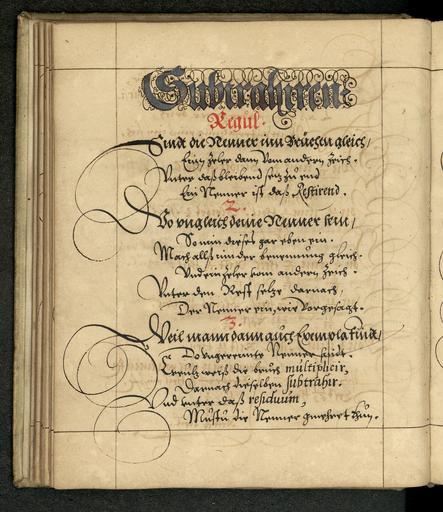 Subtrahiren
Regul.
Sindt die Nenner inn Brüchen gleich,
Einn zeler dann vom andern zeich.
Unter daß bleibend setz zu end
Ein Nenner ist daß Restirend.
2.
Wo ungleich deine Nenner sein,
So nim dieses gar eben ein.
Mach allß inn der benennung gleich.
Und ein zeler vom andern zeich.
Unter den Rest setze darnach,
Der Nenner ein, wie vorgesagt.
3.
Weil mann dann auch Exempla findt,
Do ungerennte Nenner sindt.
Creutzweiß die brüch multiplicir,
Darnach dieselben subtrahir.
Und unter daß residuum,
Mustu die Nenner gmehret thun.